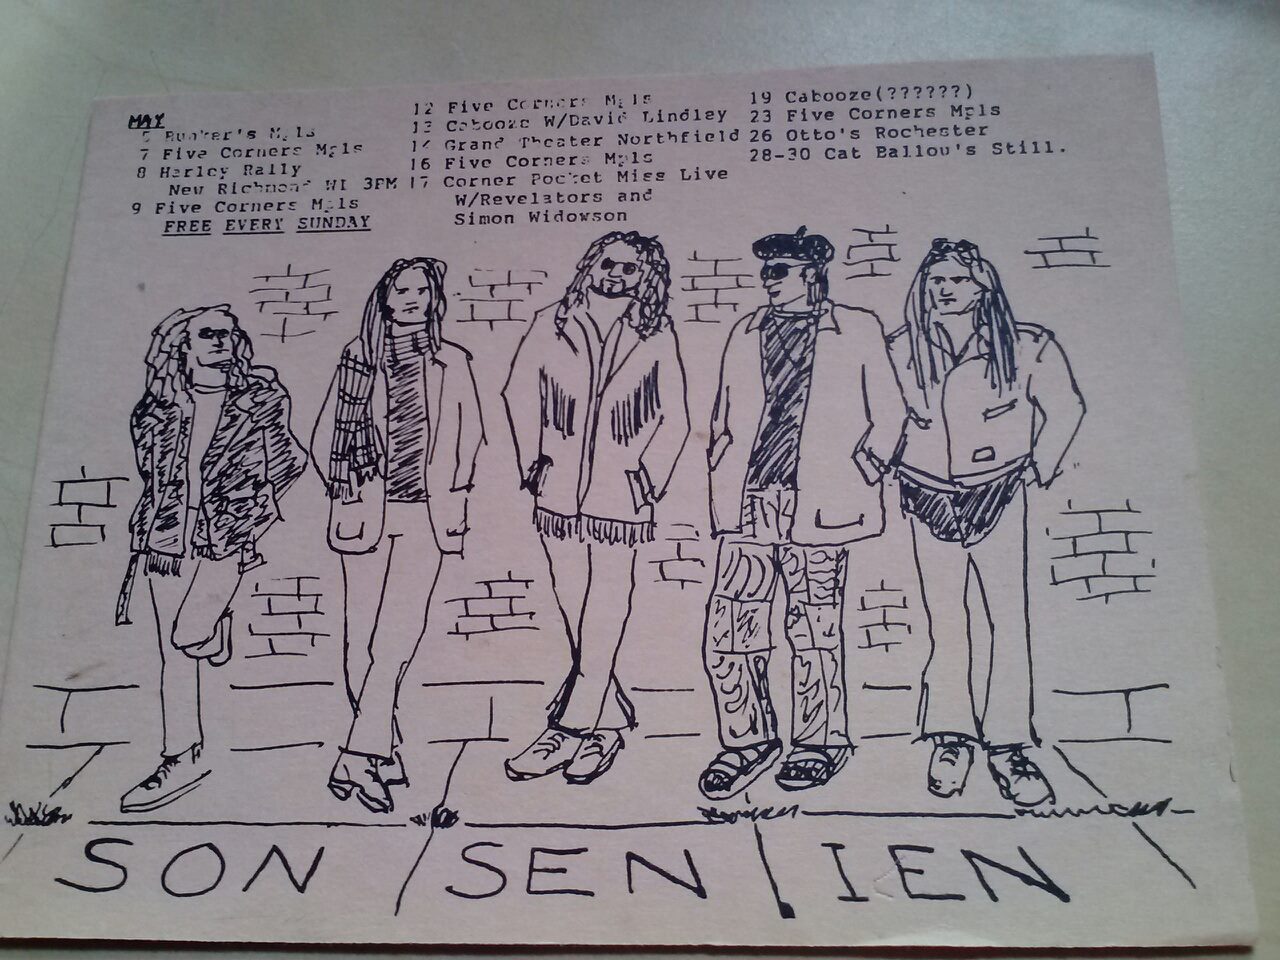 MAY
5 Bunker's Mpls
7 Five Corners Mpls
8 Harley Rally
New Richmond WI 3PM
9 Five Corners Mpls
FREE EVERY SUNDAY
12 Five Corners Mpls
13 Cabooze W/David Lindley
14 Grand Theater Northfield
16 Five Corners Mpls
17 Corner Pocket Miss Live
W/Revelators and
Simon Widowson
19 Cabooze(??????)
23 Five Corners Mpls
26 Otto's Rochester
28-30 Cat Ballou's Still.
SON SEN IEN